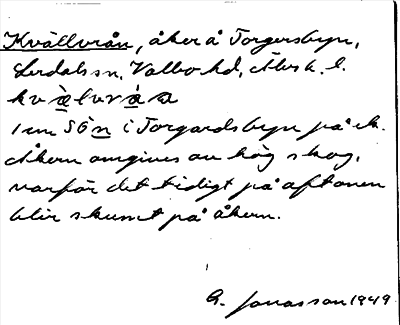 Kvällvrån, åker å Torgersbyn,
Lerdals sn, Valbo hd, Älvsb. l.
kvälvrå
1 cm SÖ n i Torgardsbyn på ek.
Åkern omgives av hög skog,
varför det tidigt på aftonen
blir skumt på åkern.
G. Jonasson 1949